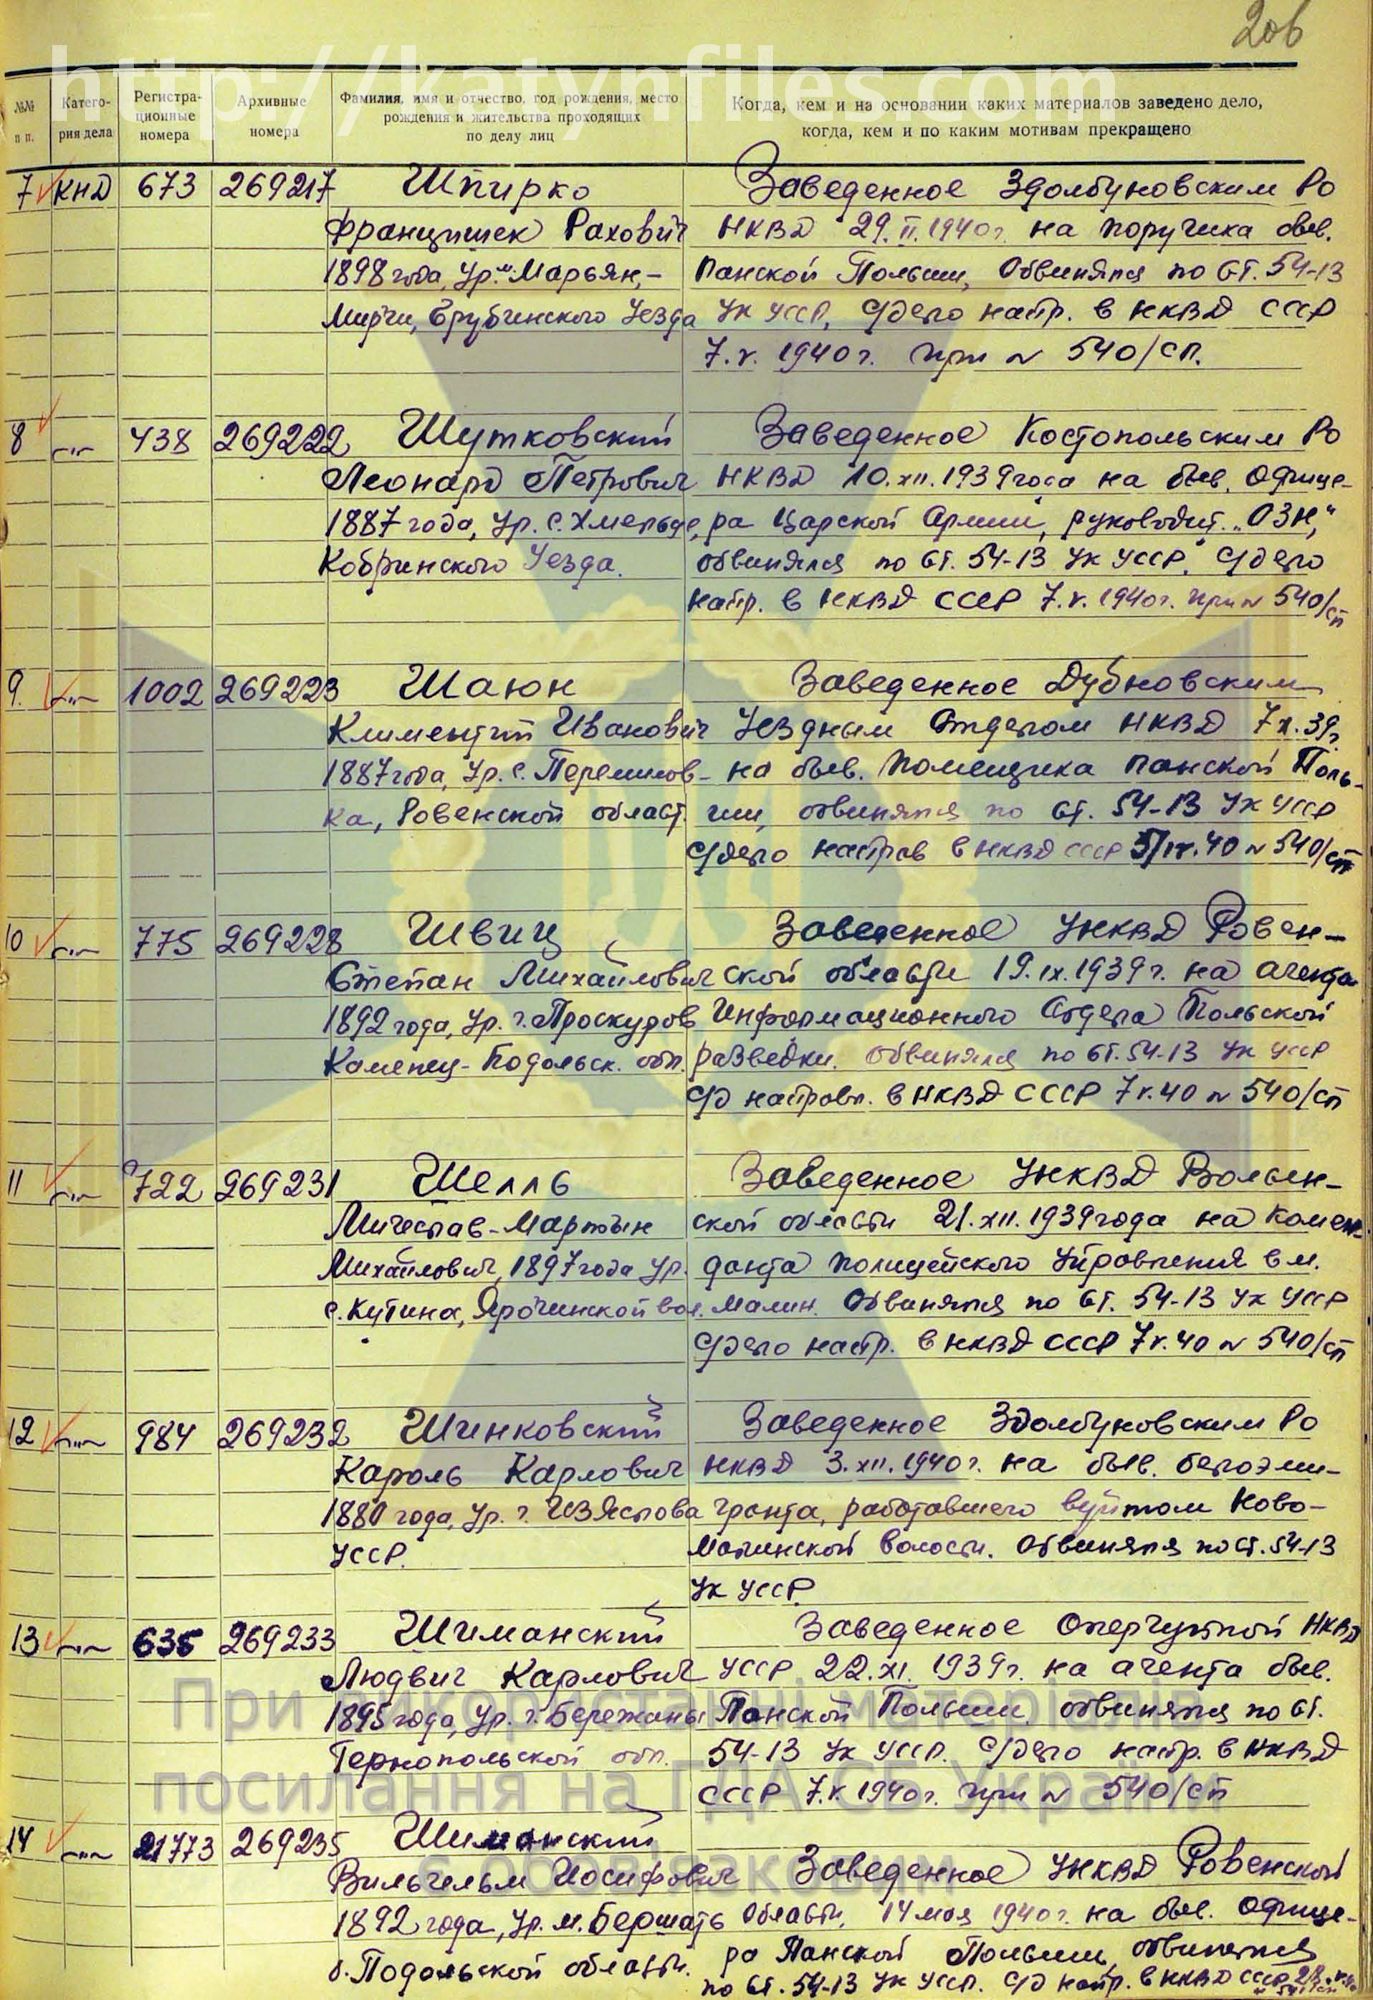 206
http://katynfiles.com
№№ п п.
Катего-
рия дела
Регистра-
ционные
номера
Архивные
номера
Фамилия, имя и отчество, год рождения, место
рождения и жительства проходящих
по делу лиц
Когда, кем и на основании каких материалов заведено дело,
когда, кем и по каким мотивам прекращено
7 КНД 673 269217 Шпирко Заведенное Здолбуновским РО
Францишек Рахович НКВД 29.II.1940г. на поручика быв.
1898 года, ур. Марьян,- Панской Польши, Обвинялся по ст. 54-13
Мирчи, Грубинского Уезда УК УССР, С/дело напр. в НКВД СССР
7.V.1940г. при № 540/сп.
8 -"- 438 269222 Шутковский Заведенное Костопольским РО
Леонард Петрович НКВД 10.XII.1939 года на быв. Офице-
1887 года, ур. с. Хмельде, ра Царской Армии, руководит. „ОЗН,"
Кобринского Уезда. обвинялся по ст. 54-13 УК УССР. С/дело
напр. в НКВД СССР 7.V.1940г. при № 540/сп
9. -"- 1002 269223 Шаюн Заведенное Дубновским
Климентий Иванович Уездным Отделом НКВД 7X.39г.
1887 года, ур. с. Перемилов- на быв. Помещика панской Поль-
ка, Ровенской област. ши, обвинялся по ст. 54-13 УК УССР
С/дело направ в НКВД СССР 5/IV.40 № 540/сп
10 -"- 775 269228 Швиц Заведенное УНКВД Ровен-
Степан Михайлович ской области 19.IX.1939г. на агента
1892 года, ур. г. Проскуров Информационного Отдела Польской
Каменец-Подольск. обл. разведки. Обвинялся по ст. 54-13 УК УССР
С/д направл. в НКВД СССР 7V.40 № 540/сп
11 -"- 722 269231 Шелль Заведенное УНКВД Волын-
Мичеслав-Мартын ской области 21.XII.1939 года на Комен-
Михайлович, 1897 года ур. данта полицейского Управления в м.
с. Кутина, Ярочинской вол. Малин. Обвинялся по ст. 54-13 УК УССР
С/дело напр. в НКВД СССР 7V.40 № 540/сп
12 -"- 984 269232 Шинковский Заведенное Здолбуновским РО
Кароль Карлович НКВД 3.XII.1940г. на быв. белоэми-
1880 года, ур. г. Изяслова гранта, работавшего вуйтом Ново-
УССР. Малинской волости. Обвинялся по ст. 54-13
УК УССР.
13 -"- 635 269233 Шиманский Заведенное Опергруппой НКВД
Людвиг Карлович УССР 22.XI.1939г. на агента быв.
1895 года, ур. г. Бережаны Панской Польши, обвинялся по ст.
Тернопольской обл. 54-13 УК УССР. С/дело напр. в НКВД
СССР 7.V.1940г. при № 540/сп
14 -"- 21773 269235 Шиманский
Вильгельм Иосифович Заведенное УНКВД Ровенской
1892 года, ур. м. Бершать Области, 14 мая 1940г. на быв. Офице-
б. Подольской области. ра Панской Польши, обвинялся
по ст. 54-13 УК УССР. С/д напр. в НКВД СССР
При використанні матеріалів
посилання на ГДА СБ України
є обов'язковим